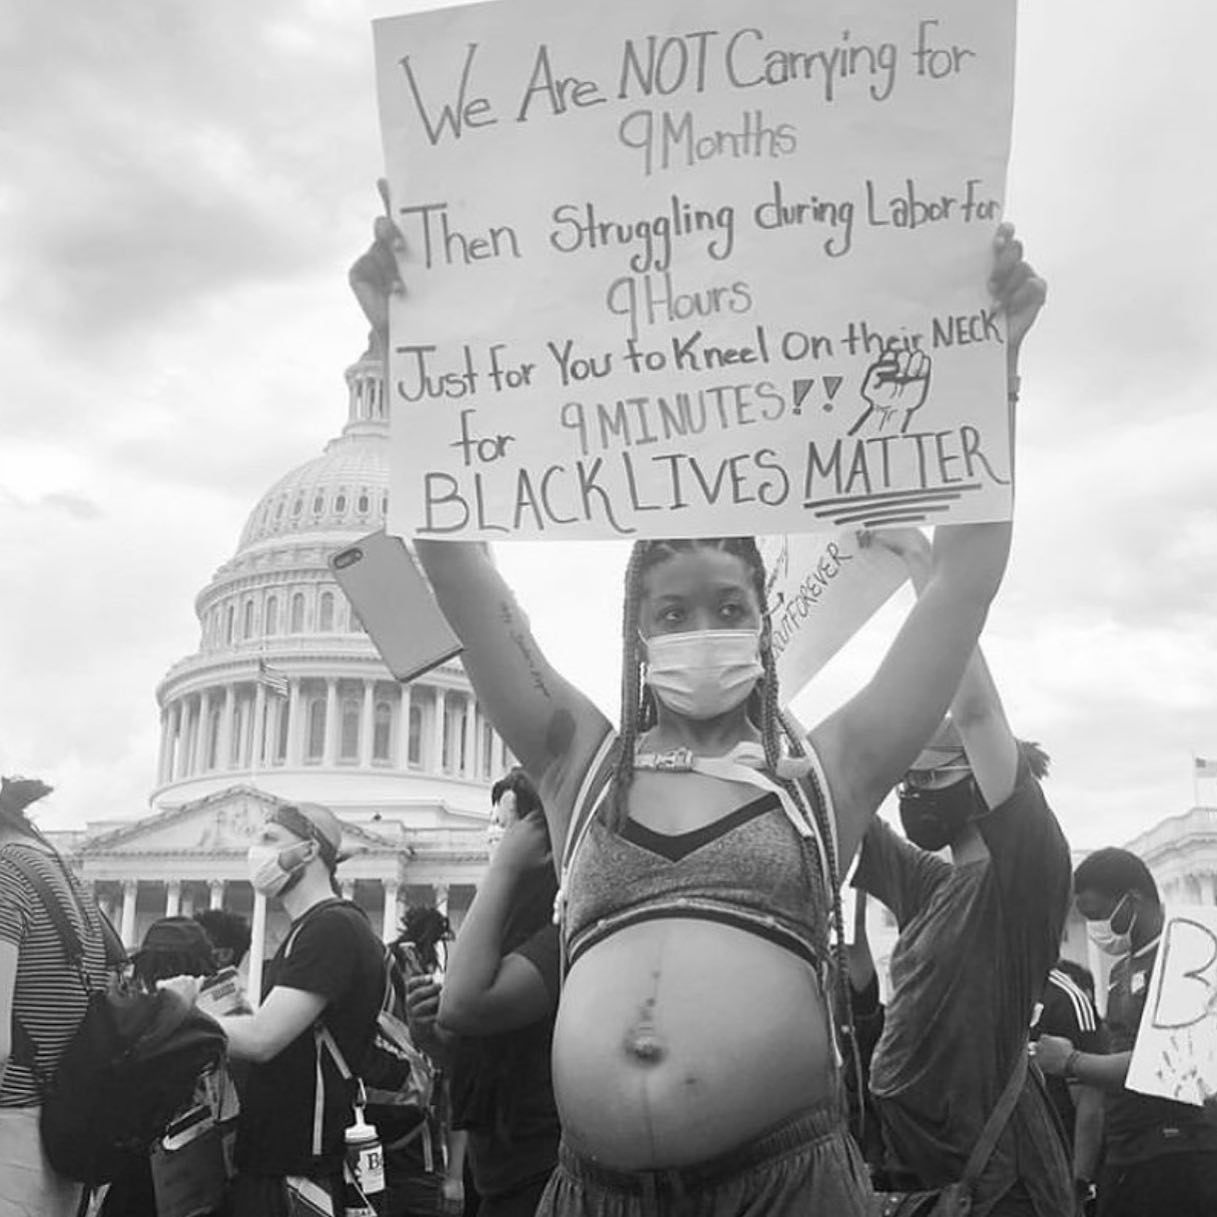 We Are NOT Carrying for
9 Months
Then Struggling during Labor for
9 Hours
Just for You to Kneel On their NECK
for 9 MINUTES!!
BLACK LIVES MATTER
B